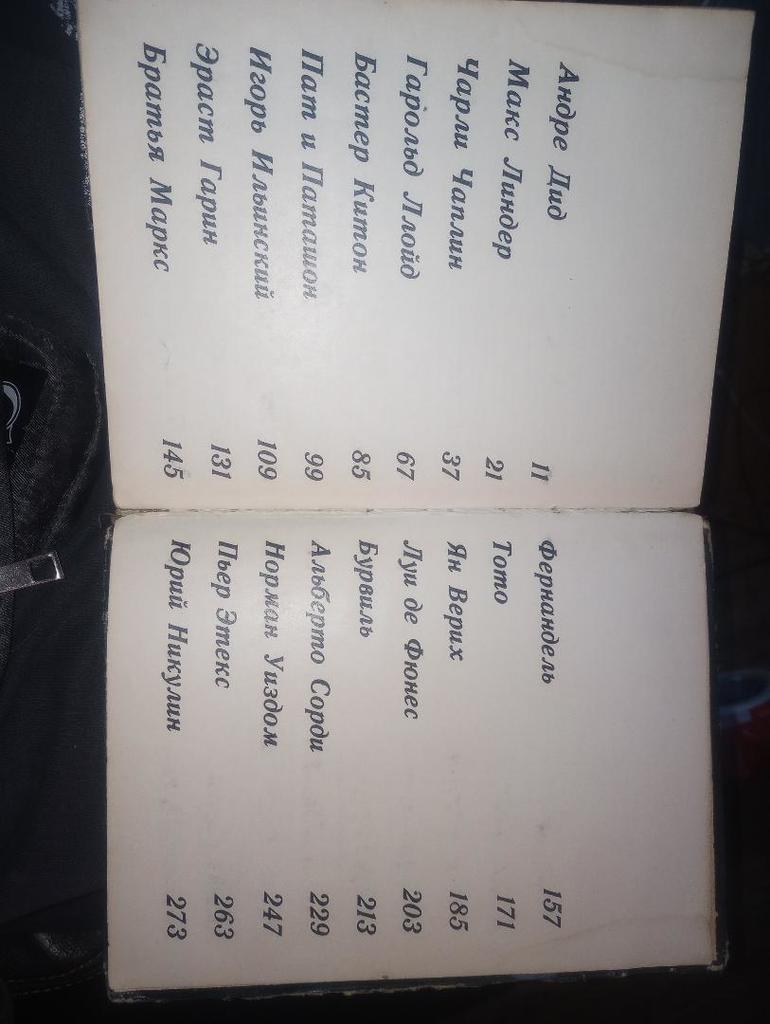 Андре Дид 11
Макс Линдер 21
Чарли Чаплин 37
Гарольд Ллойд 67
Бастер Китон 85
Пат и Паташон 99
Игорь Ильинский 109
Эраст Гарин 131
Братья Маркс 145
Фернандель 157
Тото 171
Ян Верих 185
Луи де Фюнес 203
Бурвиль 213
Альберто Сорди 229
Норман Уиздом 247
Пьер Этекс 263
Юрий Никулин 273